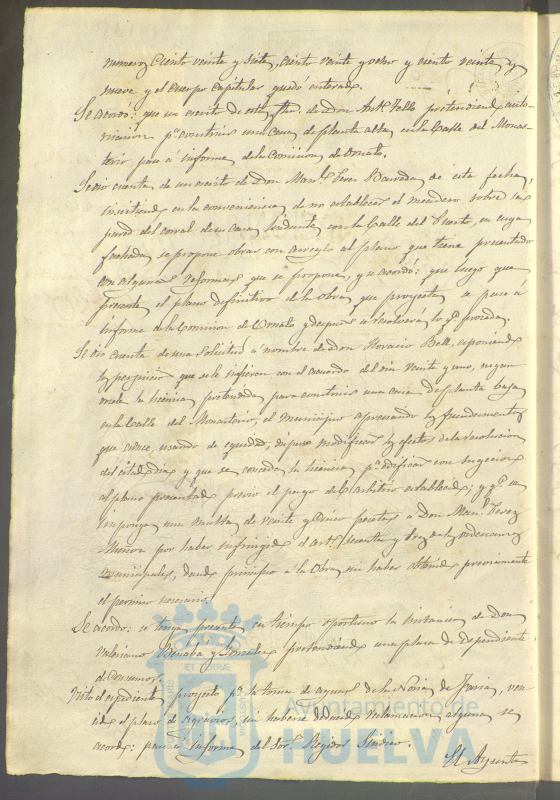 numeros Ciento veinte y siete, ciento veinte y ocho y ciento veinte y
nueve y el cuerpo capitular quedó enterado.
Se acordó: que un escrito de esta fha. de Don Antº Tello pretendiendo auto-
rizacion pª construir una casa de planta alta en la Calle del Monas-
terio pase á informe de la Comision de Ornato.
Se dio cuenta de un escrito de Don Manl. Perez Barreda de esta fecha,
insistiendo en la conveniencia de no establecer el sobre la
pared del corral de su casa lindante con la Calle del Puerto, en cuya
fachada se propone obrar con arreglo al plano que tiene presentado
con algunas reformas que se propone, y se acordó: que luego que
presente el plano definitivo de la obra que proyecta se pase á
informe de la Comision de Ornato y despues se resolverá lo qe. proceda.
Se dio cuenta de una solicitud á nombre de Don Horacio Bell, exponiendo
los perjuicios que se le infieren con el acuerdo del dia veinte y uno, negan-
dole la licencia pretendida para construir una casa de planta baja
en la Calle del Monasterio, el Municipio apreciando los fundamentos
que aduce, usando de equidad, dispuso modificar los efectos de la resolucion
del citado dia y que se conceda la licencia pª edificar con sugecion
al plano presentado previo el pago del arbitrio establecido; y qe. se
imponga una multa de veinte y cinco pesetas á Don Manl. Perez
por haber infringido el artº sesenta y dos de las ordenanzas
municipales, dando principio á la Obra sin haber obtenido previamente
el permiso necesario.
Se acordó: se tenga presente en tiempo oportuno la instancia de Don
Valeriano y Gonzalez pretendiendo una plaza de dependiente
de Consumos.
Visto el espediente y proyecto pª la toma de aguas de la Noria de Parra, ven-
cido el plazo de agravios, sin haberse deducido reclamacion alguna se
acordó: pase á informe del Sor. Regidor Sindico.
El Ayunta
Ayuntamiento de
HUELVA